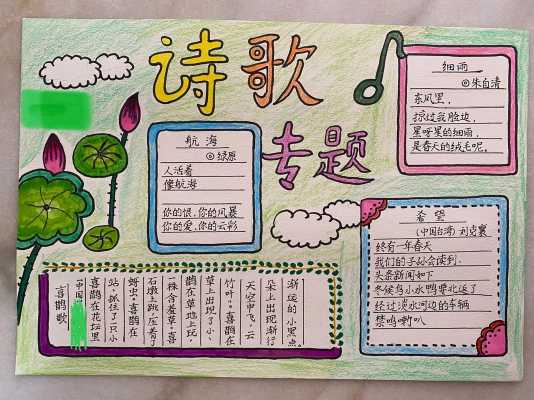 诗歌
专题
细雨
◎朱自清
东风里,
掠过我脸边,
星呀星的细雨,
是春天的绒毛呢。
航海
◎绿原
人活着
像航海
你的恨,你的风暴
你的爱,你的云彩
希望
(中国台湾)刘克襄
终有一年春天
我们的子孙会读到,
头条新闻如下
冬候鸟小水鸭要北运了
经过淡水河边的车辆
禁鸣喇叭
喜鹊歌
中国
喜鹊在花坛里
站,抓住了一只小
喜鹊在
石墩上跳,压着了
一株含羞草。喜
鹊在草地上玩,
草上出现了小
竹叶。喜鹊在
天空中飞,云
朵上出现渐行
渐远的小黑点